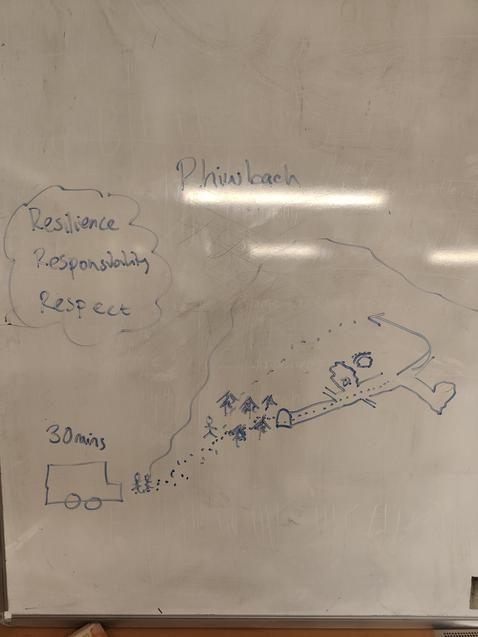 Phiwbach
Resilience
Responsibility
Respect
30mins